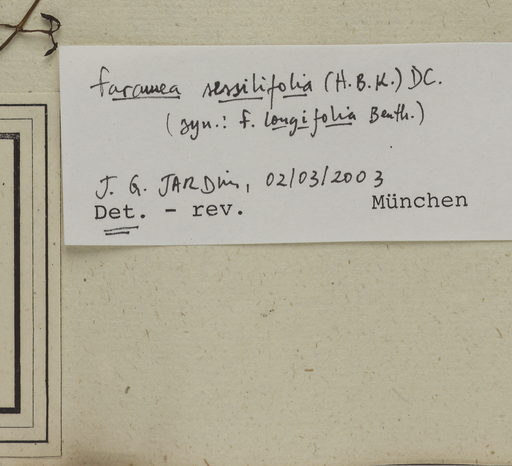 Faramea sessilifolia (H.B.K.) DC.
(syn.: F. longifolia Benth.)
J. G. JARDim, 02/03/2003
Det. - rev. München